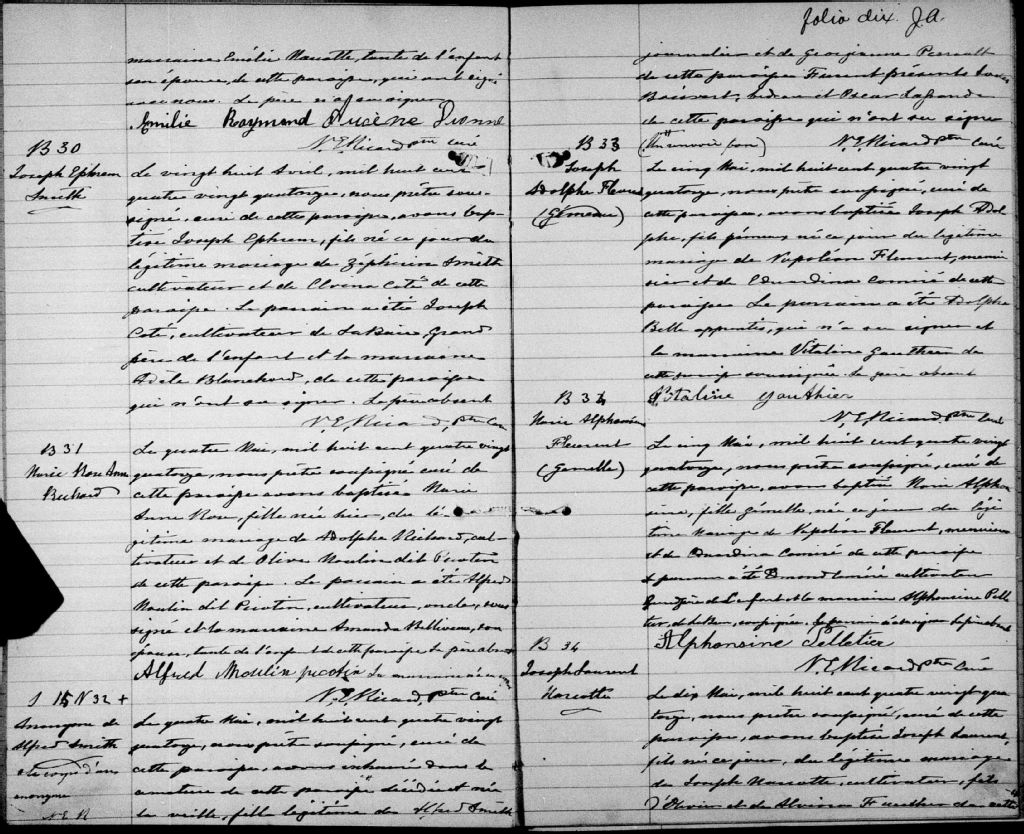 folio dix. J.A.
marraine Emélie Marcotte, tante de l'enfant
son épouse, de cette paroisse, qui ont signé
avec nous. Le père n'a su signer
Emilie Raymond Eugène Dionne
N.E. Ricard ptre curé
B 30
Joseph Ephrem
Smith
Le vingt huit Avril, mil huit cent
quatre vingt quatorze, nous prêtre sous-
signé, curé de cette paroisse, avons bap-
tisé Joseph Ephrem, fils né ce jour du
légitime mariage de Zéphirin Smith
cultivateur et de Elvina Coté de cette
paroisse. Le parrain a été Joseph
Coté, cultivateur de LaBaie, Grand
père de l'enfant et la marraine
Adèle Blanchard, de cette paroisse
qui n'ont su signer. Le père absent
N.E. Ricard, ptre Curé
B 31
Marie Rose Anna
Richard
Le quatre Mai, mil huit cent quatre vingt
quatorze, nous prêtre soussigné curé de
cette paroisse avons baptisée Marie
Anne Rose, fille née hier, du lé
gitime mariage de Adolphe Richard, cul-
tivateur et de Olive Moulin dit Picotin
de cette paroisse. Le parrain a été Alfred
Moulin dit Picotin, cultivateur, oncle, sous
signé et la marraine Amanda Belliveau, son
épouse, tante de l'enfant de cette paroisse Le père absent
Alfred Moulin picotin La marraine
N.E. Ricard, ptre Curé
S 15 N 32 +
Anonyme de
Alfred Smith
anonyme
N.E.R
Le quatre Mai, mil huit cent quatre vingt
quatorze, nous prêtre soussigné, curé de
cette paroisse, avons inhumé dans le
cimetière de cette paroisse décédé et né
la veille, fille légitime de Alfred Smith
journalier et de Georgianna Perrault
de cette paroisse Furent présents
Boisvert, bedeau et Oscar Lafonde
de cette paroisse qui n'ont su signer
N.E. Ricard ptre Curé
B 33
Joseph
Adolphe Fleurent
(Gémeau)
Le cinq Mai, mil huit cent quatre vingt
quatorze, nous prêtre soussigné, curé de
cette paroisse, avons baptisé Joseph Adol-
phe, fils gémeau né ce jour du légitime
mariage de Napoléon Fleurent, menui
sier et de Edwardina Comiré de cette
paroisse Le parrain a été Adolphe
Belle apprenti, qui n'a su signer et
la marraine Vitaline Gauthier de
cette paroisse soussignée. Le père absent
Vitaline Gauthier
N.E. Ricard ptre Curé
Marie Alphonsine
Fleurent
(Gemelle)
Le cinq Mai, mil huit cent quatre vingt
quatorze, nous prêtre soussigné, curé de
cette paroisse, avons baptisée Marie Alphon
sine, fille gémelle, née ce jour du légi
time mariage de Napoléon Fleurent, menuisier
et de Edwardina Comiré de cette paroisse
Le parrain a été Edmond Comiré cultivateur
Grand père de l'enfant et la marraine Alphonsine Pelle
Alphonsine Pelletier
N.E. Ricard ptre Curé
B 34
Joseph Laurent
Marcotte
Le dix Mai, mil huit cent quatre vingt qua
torze, nous prêtre soussigné, curé de cette
paroisse, avons baptisé Joseph Laurent,
fils né ce jour, du légitime mariage
de Joseph Marcotte, cultivateur, fils